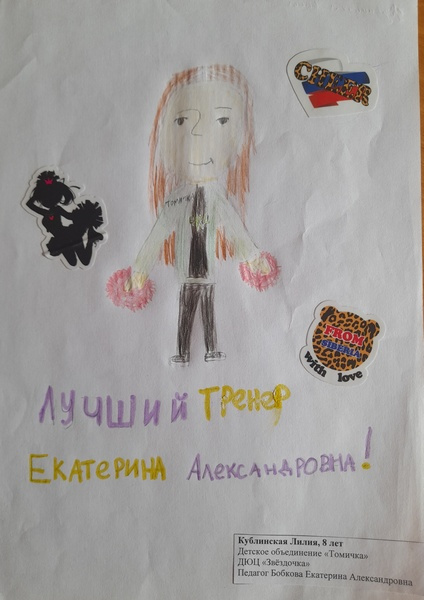 CHEER
FROM
SIBERIA
with love
ЛУЧШИЙ ТРЕНЕР
ЕКАТЕРИНА АЛЕКСАНДРОВНА!
Кублинская Лилия, 8 лет
Детское объединение «Томичка»
ДЮЦ «Звёздочка»
Педагог Бобкова Екатерина Александровна